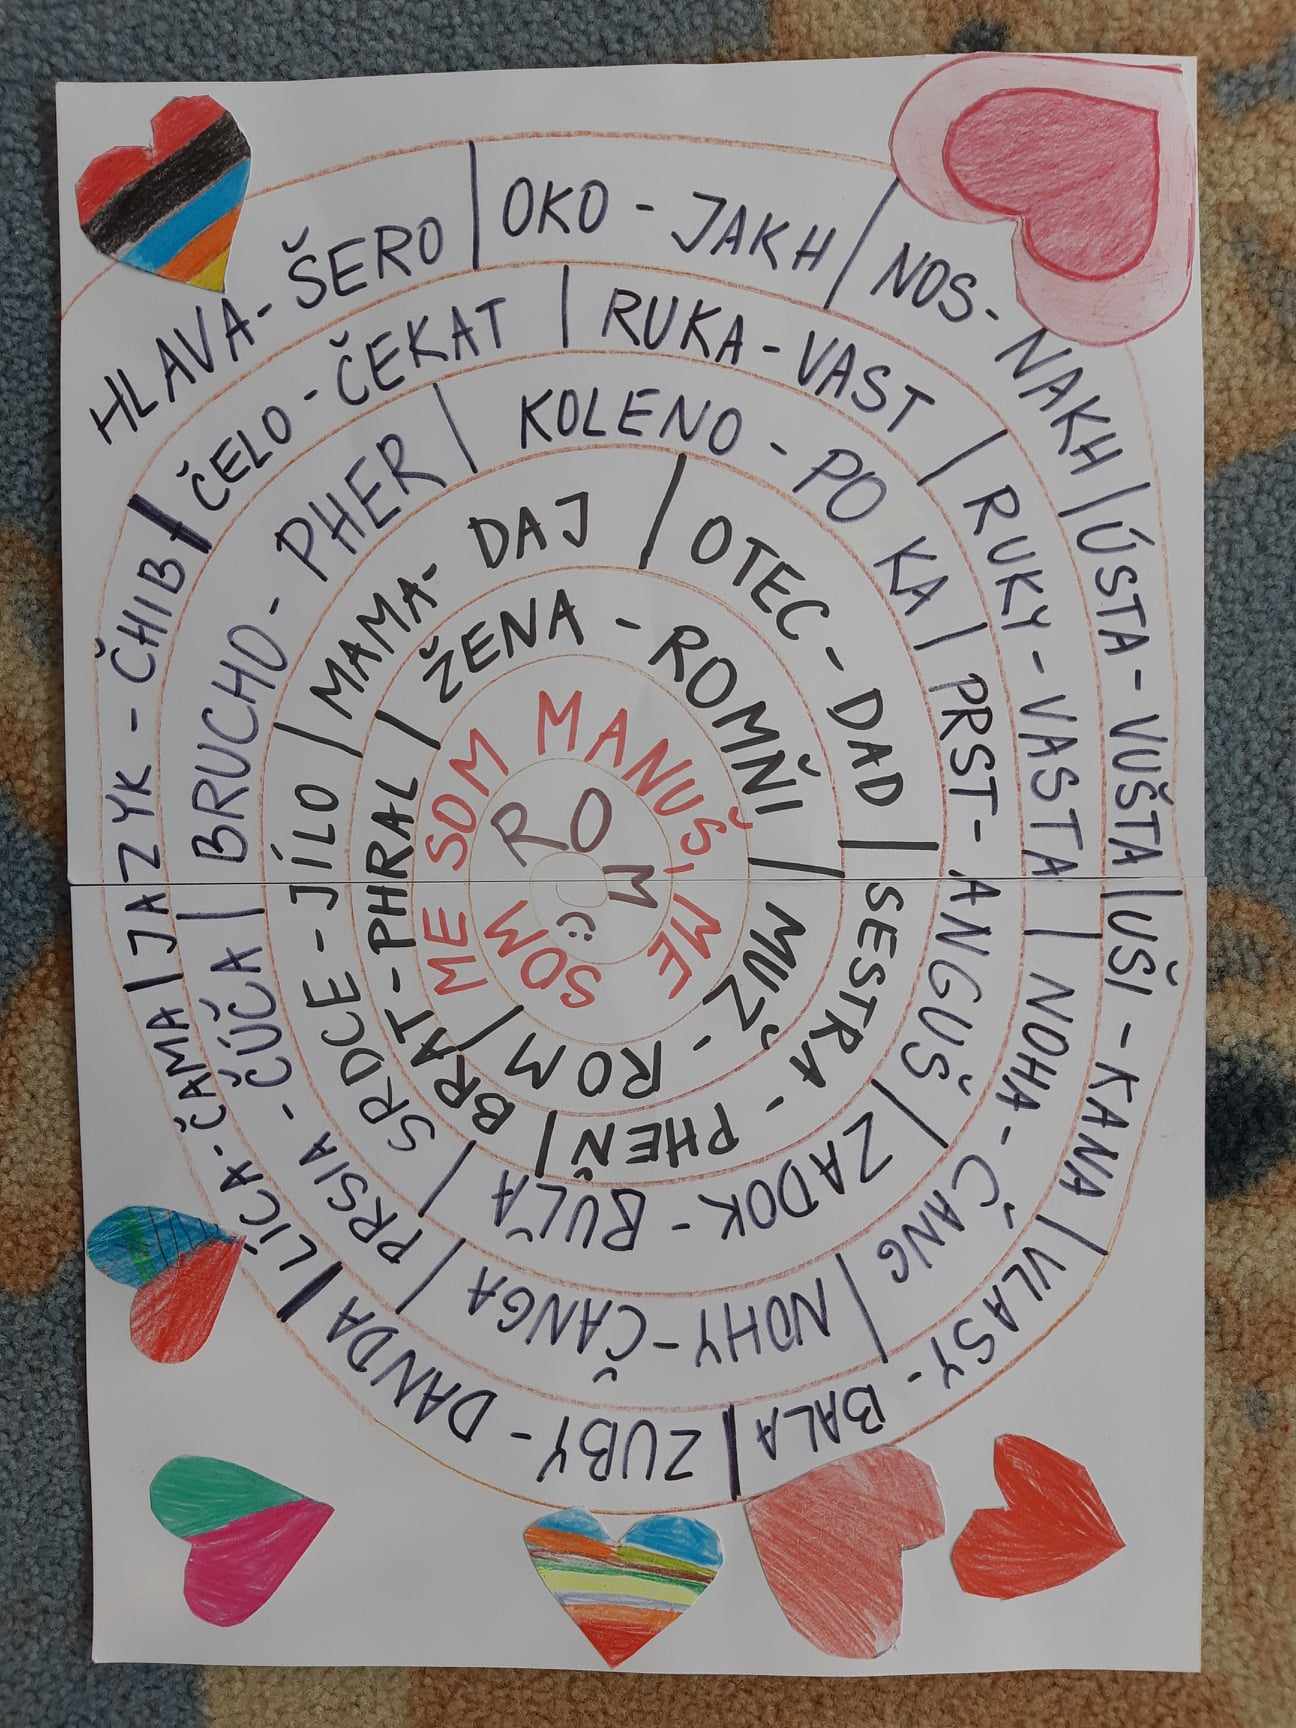 HLAVA - ŠERO | OKO - JAKH | NOS - NAKH | ÚSTA - VUŠTA | UŠI - KANA | VLASY - BALA | ZUBY - DANDA |
LÍCA - ČAMA | JAZYK - ČHIB |
ČELO - ČEKAT | RUKA - VAST | RUKY - VASTA | NOHA - ČANG | NOHY - ČANGA | PRSIA - ČÚČA |
BRUCHO - PHER | KOLENO - POKA | PRST - ANGUŠ | ZADOK - BUĽA | SRDCE - JÍLO |
MAMA - DAJ | OTEC - DAD | SESTRA - PHEŇ | BRAT - PHRAL |
ŽENA - ROMŇI | MUŽ - ROM |
ME SOM MANUŠ, ME SOM
ROM